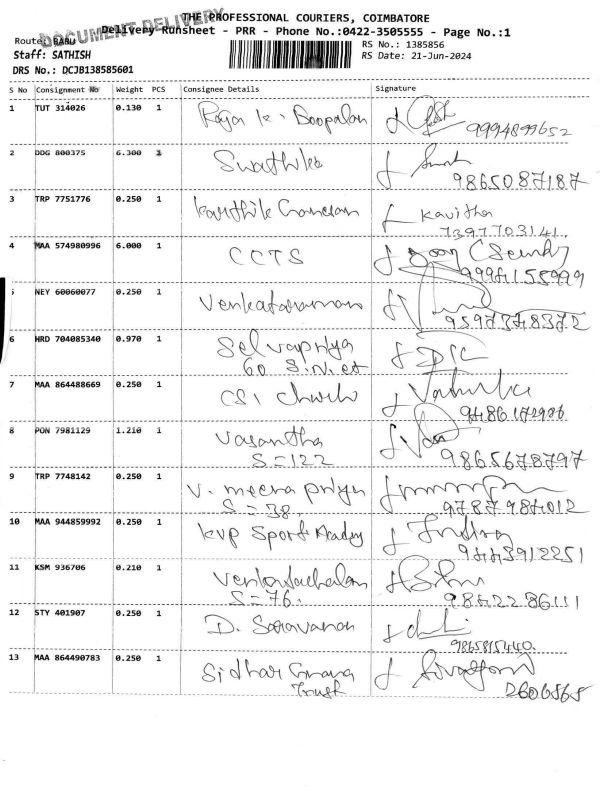 THE PROFESSIONAL COURIERS, COIMBATORE
DOCUMENT DELIVERY
Delivery Runsheet - PRR - Phone No.:0422-3505555 - Page No.:1
Route: BABU
RS No.: 1385856
Staff: SATHISH
RS Date: 21-Jun-2024
DRS No.: DCJB138585601
S No Consignment No Weight PCS Consignee Details Signature
1 TUT 314026 0.130 1 Raja k. Boopalan
9994899652
2 DDG 800375 6.300 1 Swathika
9865087187
3 TRP 7751776 0.250 1 Karthik Ganesan Kavitha
7397703141
4 MAA 574980996 6.000 1 CCTS
9994155999
5 NEY 60060077 0.250 1 Venkataraman
9597378372
6 HRD 704085340 0.970 1 Selvapriya
60 S.N.
7 MAA 864488669 0.250 1 CSI Church
9486172986
8 PON 7981129 1.210 1 Vasantha
S=122
9865678797
9 TRP 7748142 0.250 1 V. meera priya
S=38.
9787987012
10 MAA 944859992 0.250 1 KVP Sports Academy
9443912251
11 KSM 936706 0.210 1 Venkatachalam
S=76.
9842286111
12 STY 401907 0.250 1 D. Saravanan
9865815440
13 MAA 864490783 0.250 1 Sidhar Gnana
Trust
2606565